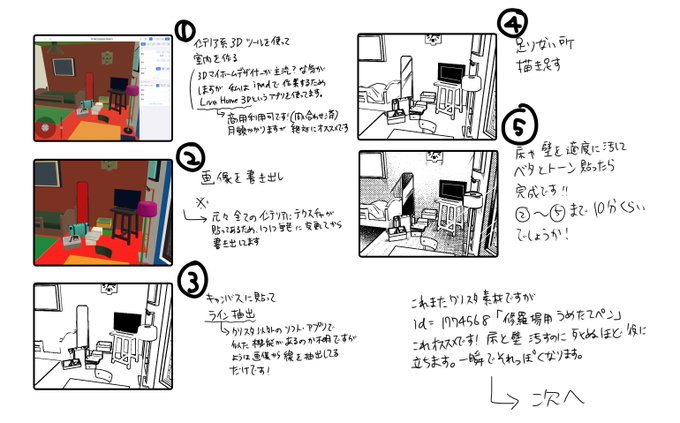 ①
インテリア系3Dツールを使って
室内を作る
3Dマイホームデザイナーが主流?な気が
しますが私はipadで作業するため
Live Home 3Dというアプリを使ってます。
→商用利用可です!(問い合わせ済)
月額かかりますが絶対にオススメです
②
画像を書き出し
※
→元々全てのインテリアにテクスチャが
貼ってあるため、1つ1つ単色に変更してから
書き出してます
③
キャンバスに貼って
ライン抽出
→クリスタ以外のソフト・アプリで
似た機能があるのか不明ですが
ようは画像から線を抽出してる
だけです!
④
足りない所
描き足す
⑤
床や壁を適度に汚して
ベタとトーン貼ったら
完成です!!
②〜⑤まで10分くらい
でしょうか!
これまたクリスタ素材ですが
id=1774568「修羅場用うめたてペン」
これオススメです!床と壁汚すのに死ぬほど役に
立ちます。一瞬でそれっぽくなります。
→次へ